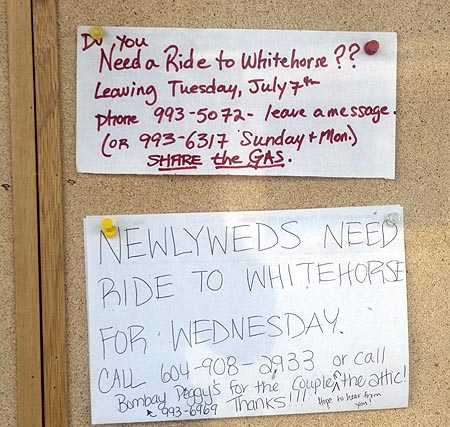 Do You
Need a Ride to Whitehorse ??
Leaving Tuesday, July 7th
phone 993-5072 - leave a message.
(or 993-6317 Sunday + Mon.)
SHARE the GAS.
NEWLYWEDS NEED
RIDE TO WHITEHORSE
FOR WEDNESDAY.
CALL 604-908-2933 or call
Bombay Peggy's for the couple in the attic!
993-6969 Thanks!!! Hope to hear from
you!